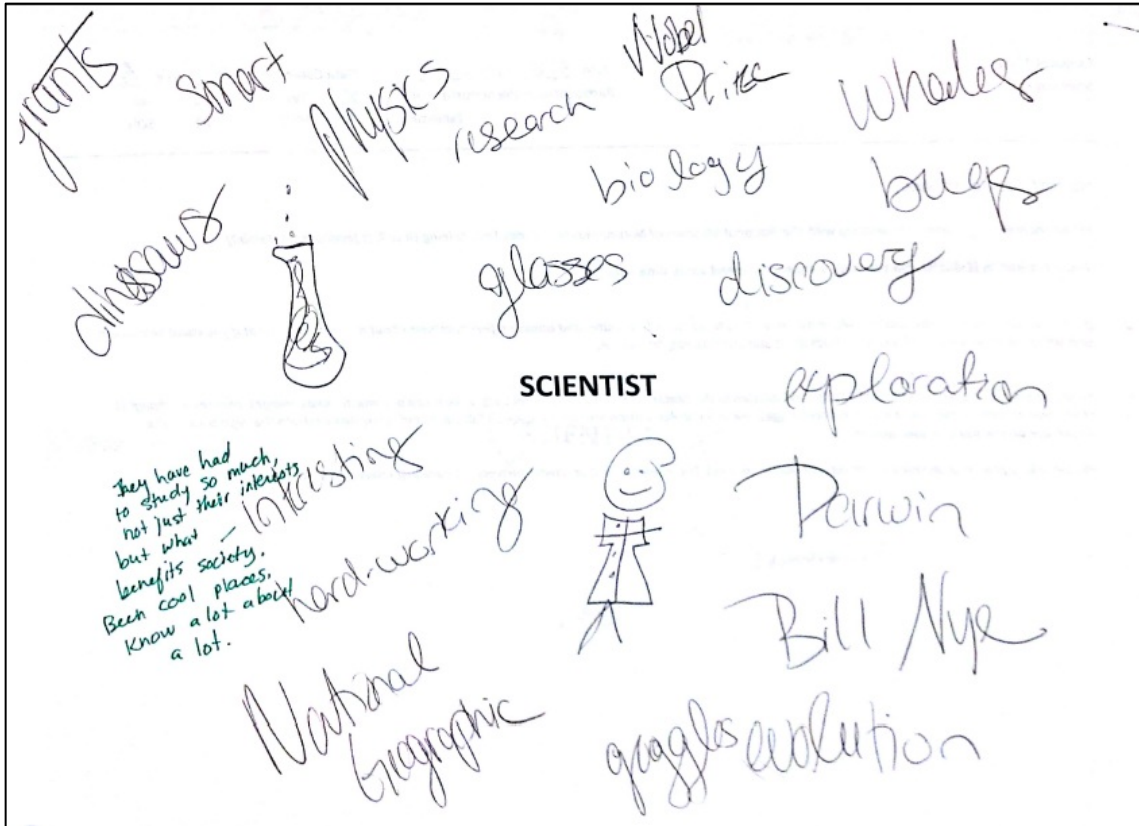 grants
smart
Physics
research
Nobel
Prize
whales
biology
bugs
dinosaurs
glasses
discovery
SCIENTIST
exploration
They have had
to study so much,
not just their interests
but what
benefits society.
Been cool places,
know a lot about
a lot.
interesting
hard-working
Darwin
Bill Nye
National
Geographic
goggles
evolution